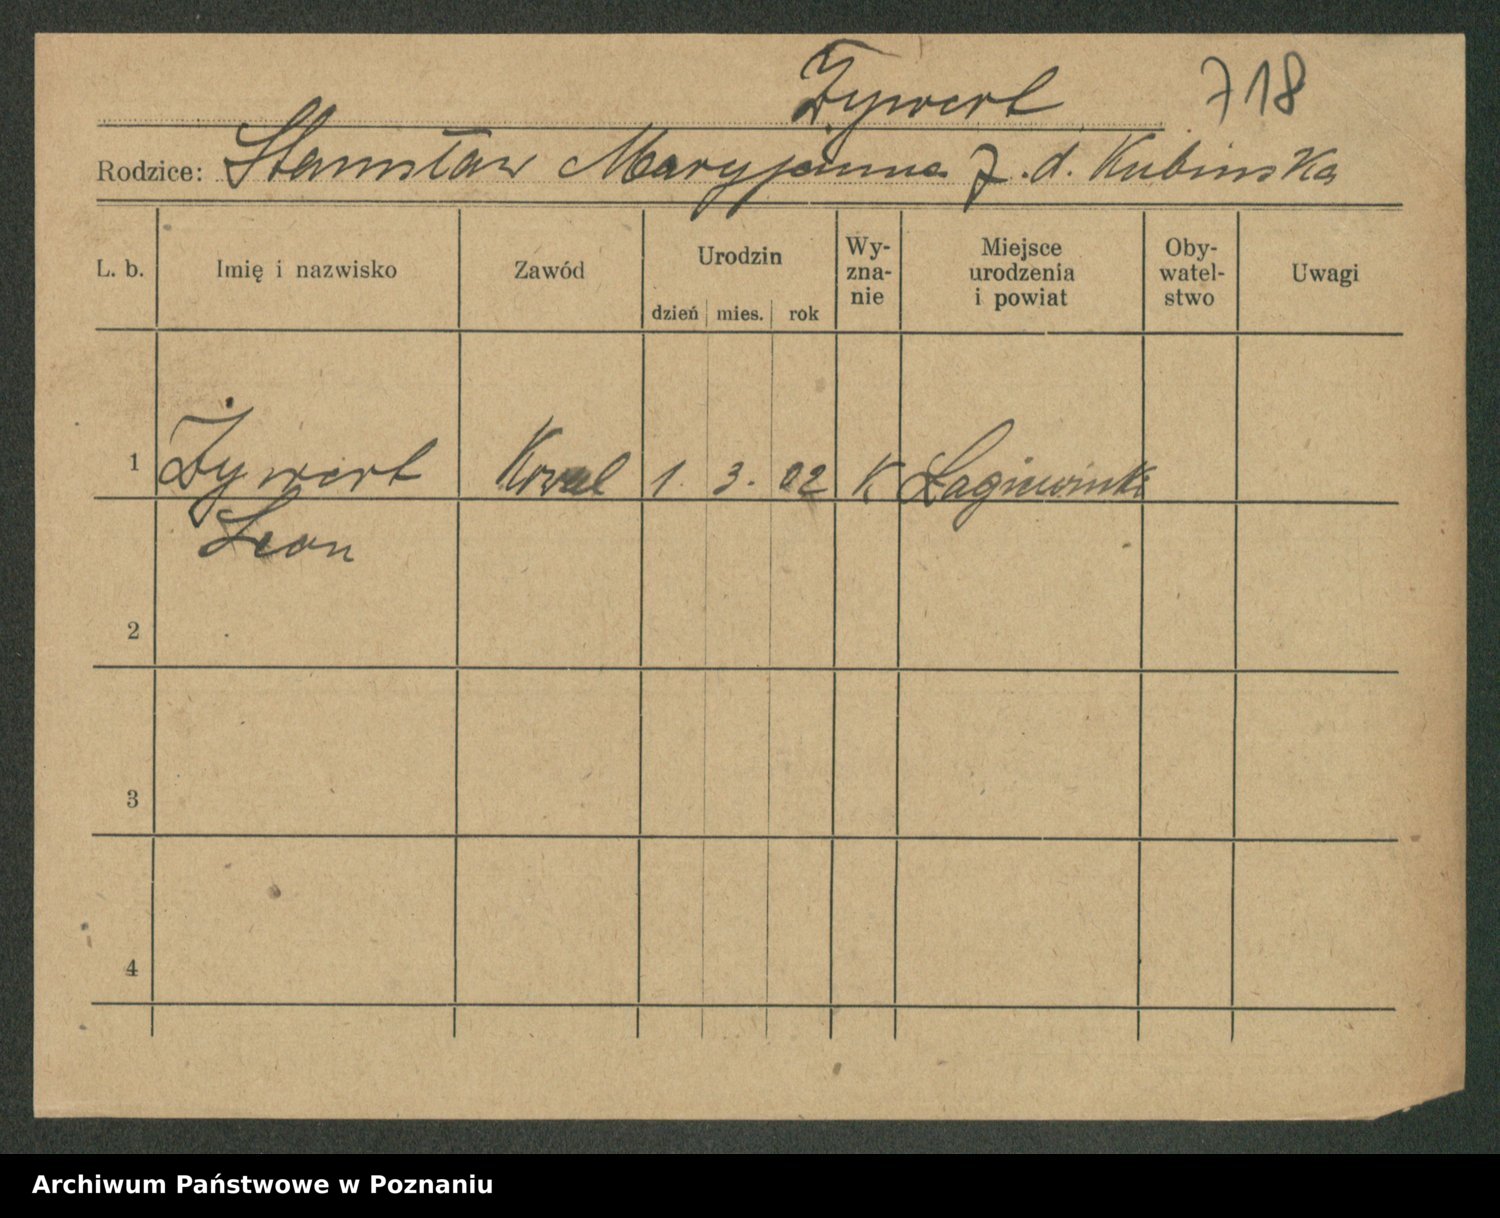 Żywert 718
Rodzice: Stanisław Maryjanna z. d. Kubinska
L. b. Imię i nazwisko Zawód Urodzin dzień mies. rok Wy-zna-nie Miejsce urodzenia i powiat Oby-watel-stwo Uwagi
1 Żywert Kowal 1. 3. 02 K Łagiewniki
Leon
2
3
4
Archiwum Państwowe w Poznaniu